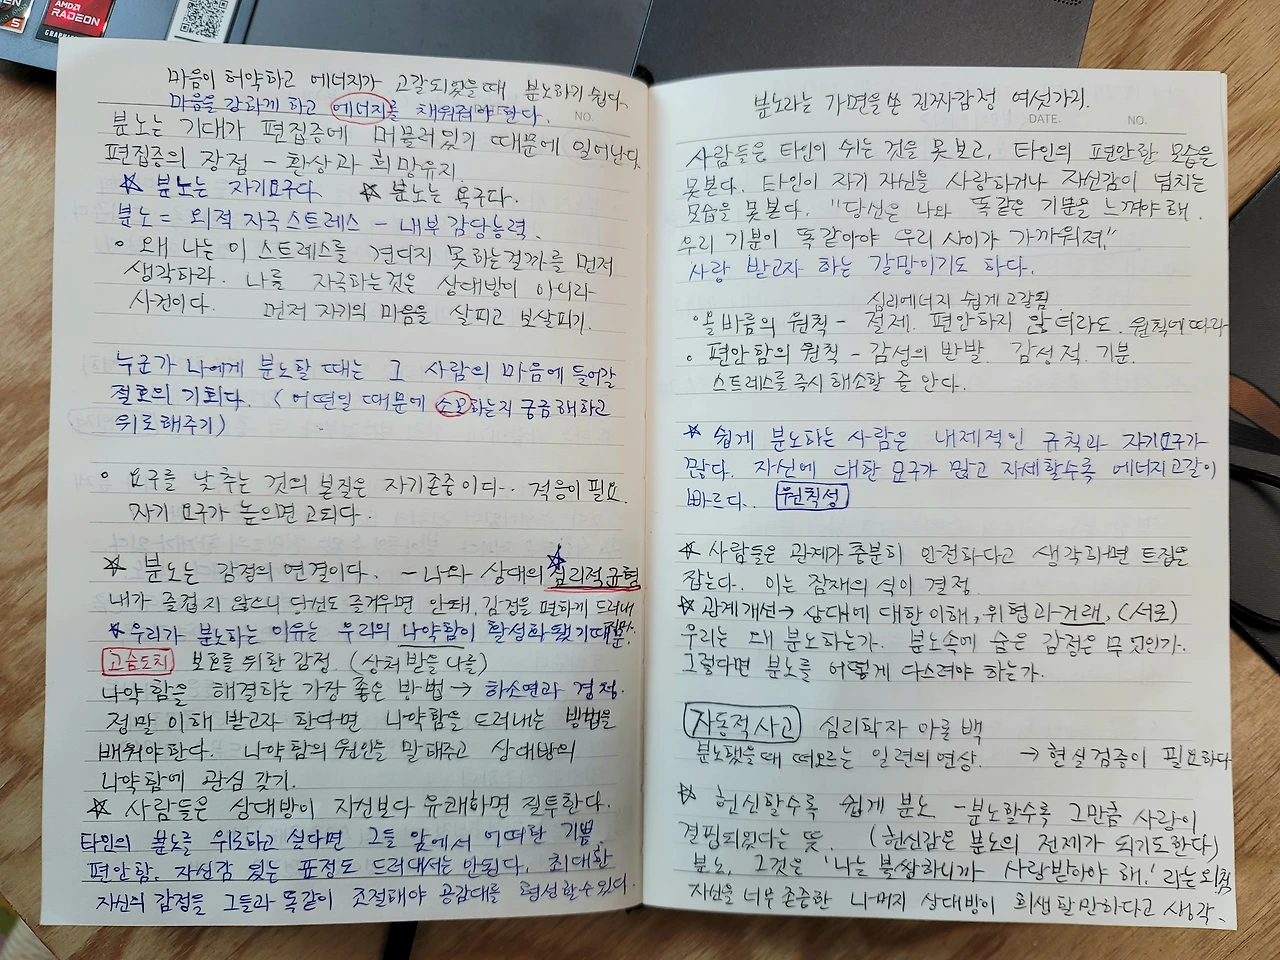 AMD
RADEON
마음이 허약하고 에너지가 고갈되었을때 분노하기 쉽다.
마음을 강하게 하고 에너지를 채워줘야 한다.
NO.
분노는 기대가 편집증에 머물러있기 때문에 일어난다
편집증의 장점 - 환상과 희망유지.
☆ 분노는 자기요구다. ☆ 분노는 욕구다.
분노 = 외적 자극스트레스 - 내부 감당능력.
○ 왜 나는 이 스트레스를 견디지 못하는걸까를 먼저
생각하라. 나를 자극하는것은 상대방이 아니라
사건이다. 먼저 자기의 마음을 살피고 보살피기.
누군가 나에게 분노할 때는 그 사람의 마음에 들어갈
절호의 기회다. (어떤일 때문에 소모하는지 궁금해하고
위로해주기)
○ 요구를 낮추는 것의 본질은 자기존중이다.. 적응이 필요.
자기 요구가 높으면 고되다.
☆ 분노는 감정의 연결이다. - 나와 상대의 심리적균형
내가 즐겁지 않으니 당신도 즐거우면 안돼, 감정을 편하게 드러내
☆우리가 분노하는 이유는 우리의 나약함이 활성화됐기때문.
고슴도치 보호를 위한 감정. (상처받을 나를)
나약함을 해결하는 가장 좋은 방법 → 하소연과 경청.
정말 이해 받고자 한다면 나약함을 드러내는 방법을
배워야한다. 나약함의 원인을 말해주고 상대방의
나약함에 관심 갖기.
☆ 사람들은 상대방이 자신보다 유쾌하면 질투한다.
타인의 분노를 위로하고 싶다면 그들 앞에서 어떠한 기쁨
편안함, 자신감 있는 표정도 드러내서는 안된다. 최대한
자신의 감정을 그들과 똑같이 조절해야 공감대를 형성할수있다.
분노라는 가면을 쓴 진짜감정 여섯가지.
DATE. NO.
사람들은 타인이 쉬는 것을 못 보고, 타인의 편안한 모습을
못본다. 타인이 자기 자신을 사랑하거나 자신감이 넘치는
모습을 못본다. "당신은 나와 똑같은 기분을 느껴야 해.
우리 기분이 똑같아야 우리 사이가 가까워져."
사랑 받고자 하는 갈망이기도 하다.
심리에너지 쉽게 고갈됨.
○올바름의 원칙 - 절제. 편안하지 않더라도 원칙에 따라
○ 편안함의 원칙 - 감성의 반발. 감성적. 기분.
스트레스를 즉시 해소할 줄 안다.
☆ 쉽게 분노하는 사람은 내제적인 규칙과 자기요구가
많다. 자신에 대한 요구가 많고 자세할수록 에너지고갈이
빠르다. 원칙성
☆ 사람들은 관계가 충분히 안전하다고 생각하면 트집을
잡는다. 이는 잠재의식이 결정.
☆관계개선→ 상대에 대한 이해, 위협과 거래, (서로)
우리는 왜 분노하는가. 분노속에 숨은 감정은 무엇인가.
그렇다면 분노를 어떻게 다스려야 하는가.
자동적사고 심리학자 아론 백
분노했을때 떠오르는 일련의 연상. → 현실검증이 필요하다
☆ 헌신할수록 쉽게 분노 - 분노할수록 그만큼 사랑이
결핍되었다는 뜻. (헌신감은 분노의 전제가 되기도한다)
분노, 그것은 '나는 불쌍하니까 사랑받아야 해.' 라는 외침
자신을 너무 존중한 나머지 상대방이 희생할만하다고 생각.